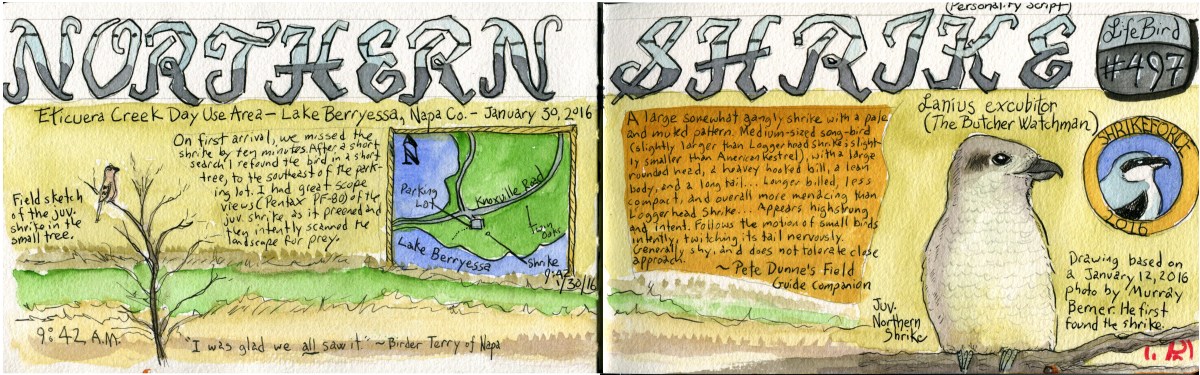 NORTHERN
Eticuera Creek Day Use Area – Lake Berryessa, Napa Co. - January 30, 2016
On first arrival, we missed the
shrike by ten minutes. After a short
search I refound the bird in a short
tree, to the southeast of the park-
ing lot. I had great scope
views (Pentax PF-80) of the
juv. shrike, as it preened and
then intently scanned the
landscape for prey.
Field sketch
of the juv.
shrike in the
small tree.
N
Parking
Lot
Knoxville Road
Lake Berryessa
Shrike
9:42
1/30/16
9:42 A.M.
"I was glad we all saw it" ~ Birder Terry of Napa
(Personality Script)
SHRIKE
Life Bird
#497
A large somewhat gangly shrike with a pale
and muted pattern. Medium-sized song-bird
(slightly larger than Loggerhead shrike & slight-
ly smaller than American Kestrel), with a large
rounded head, a heavey hooked bill, a lean
body, and a long tail... Longer billed, less
compact, and overall more menacing than
Loggerhead Shrike... Appears highstrung
and intent. Follows the motion of small birds
intently, twitching its tail nervously.
Generally shy, and does not tolorate close
approach.
~ Pete Dunne's Field
Guide Companion
Lanius excubitor
(The Butcher Watchman)
SHRIKEFORCE
2016
Juv.
Northern
Shrike
Drawing based on
a January 12, 2016
photo by Murray
Berner. He first
found the shrike.